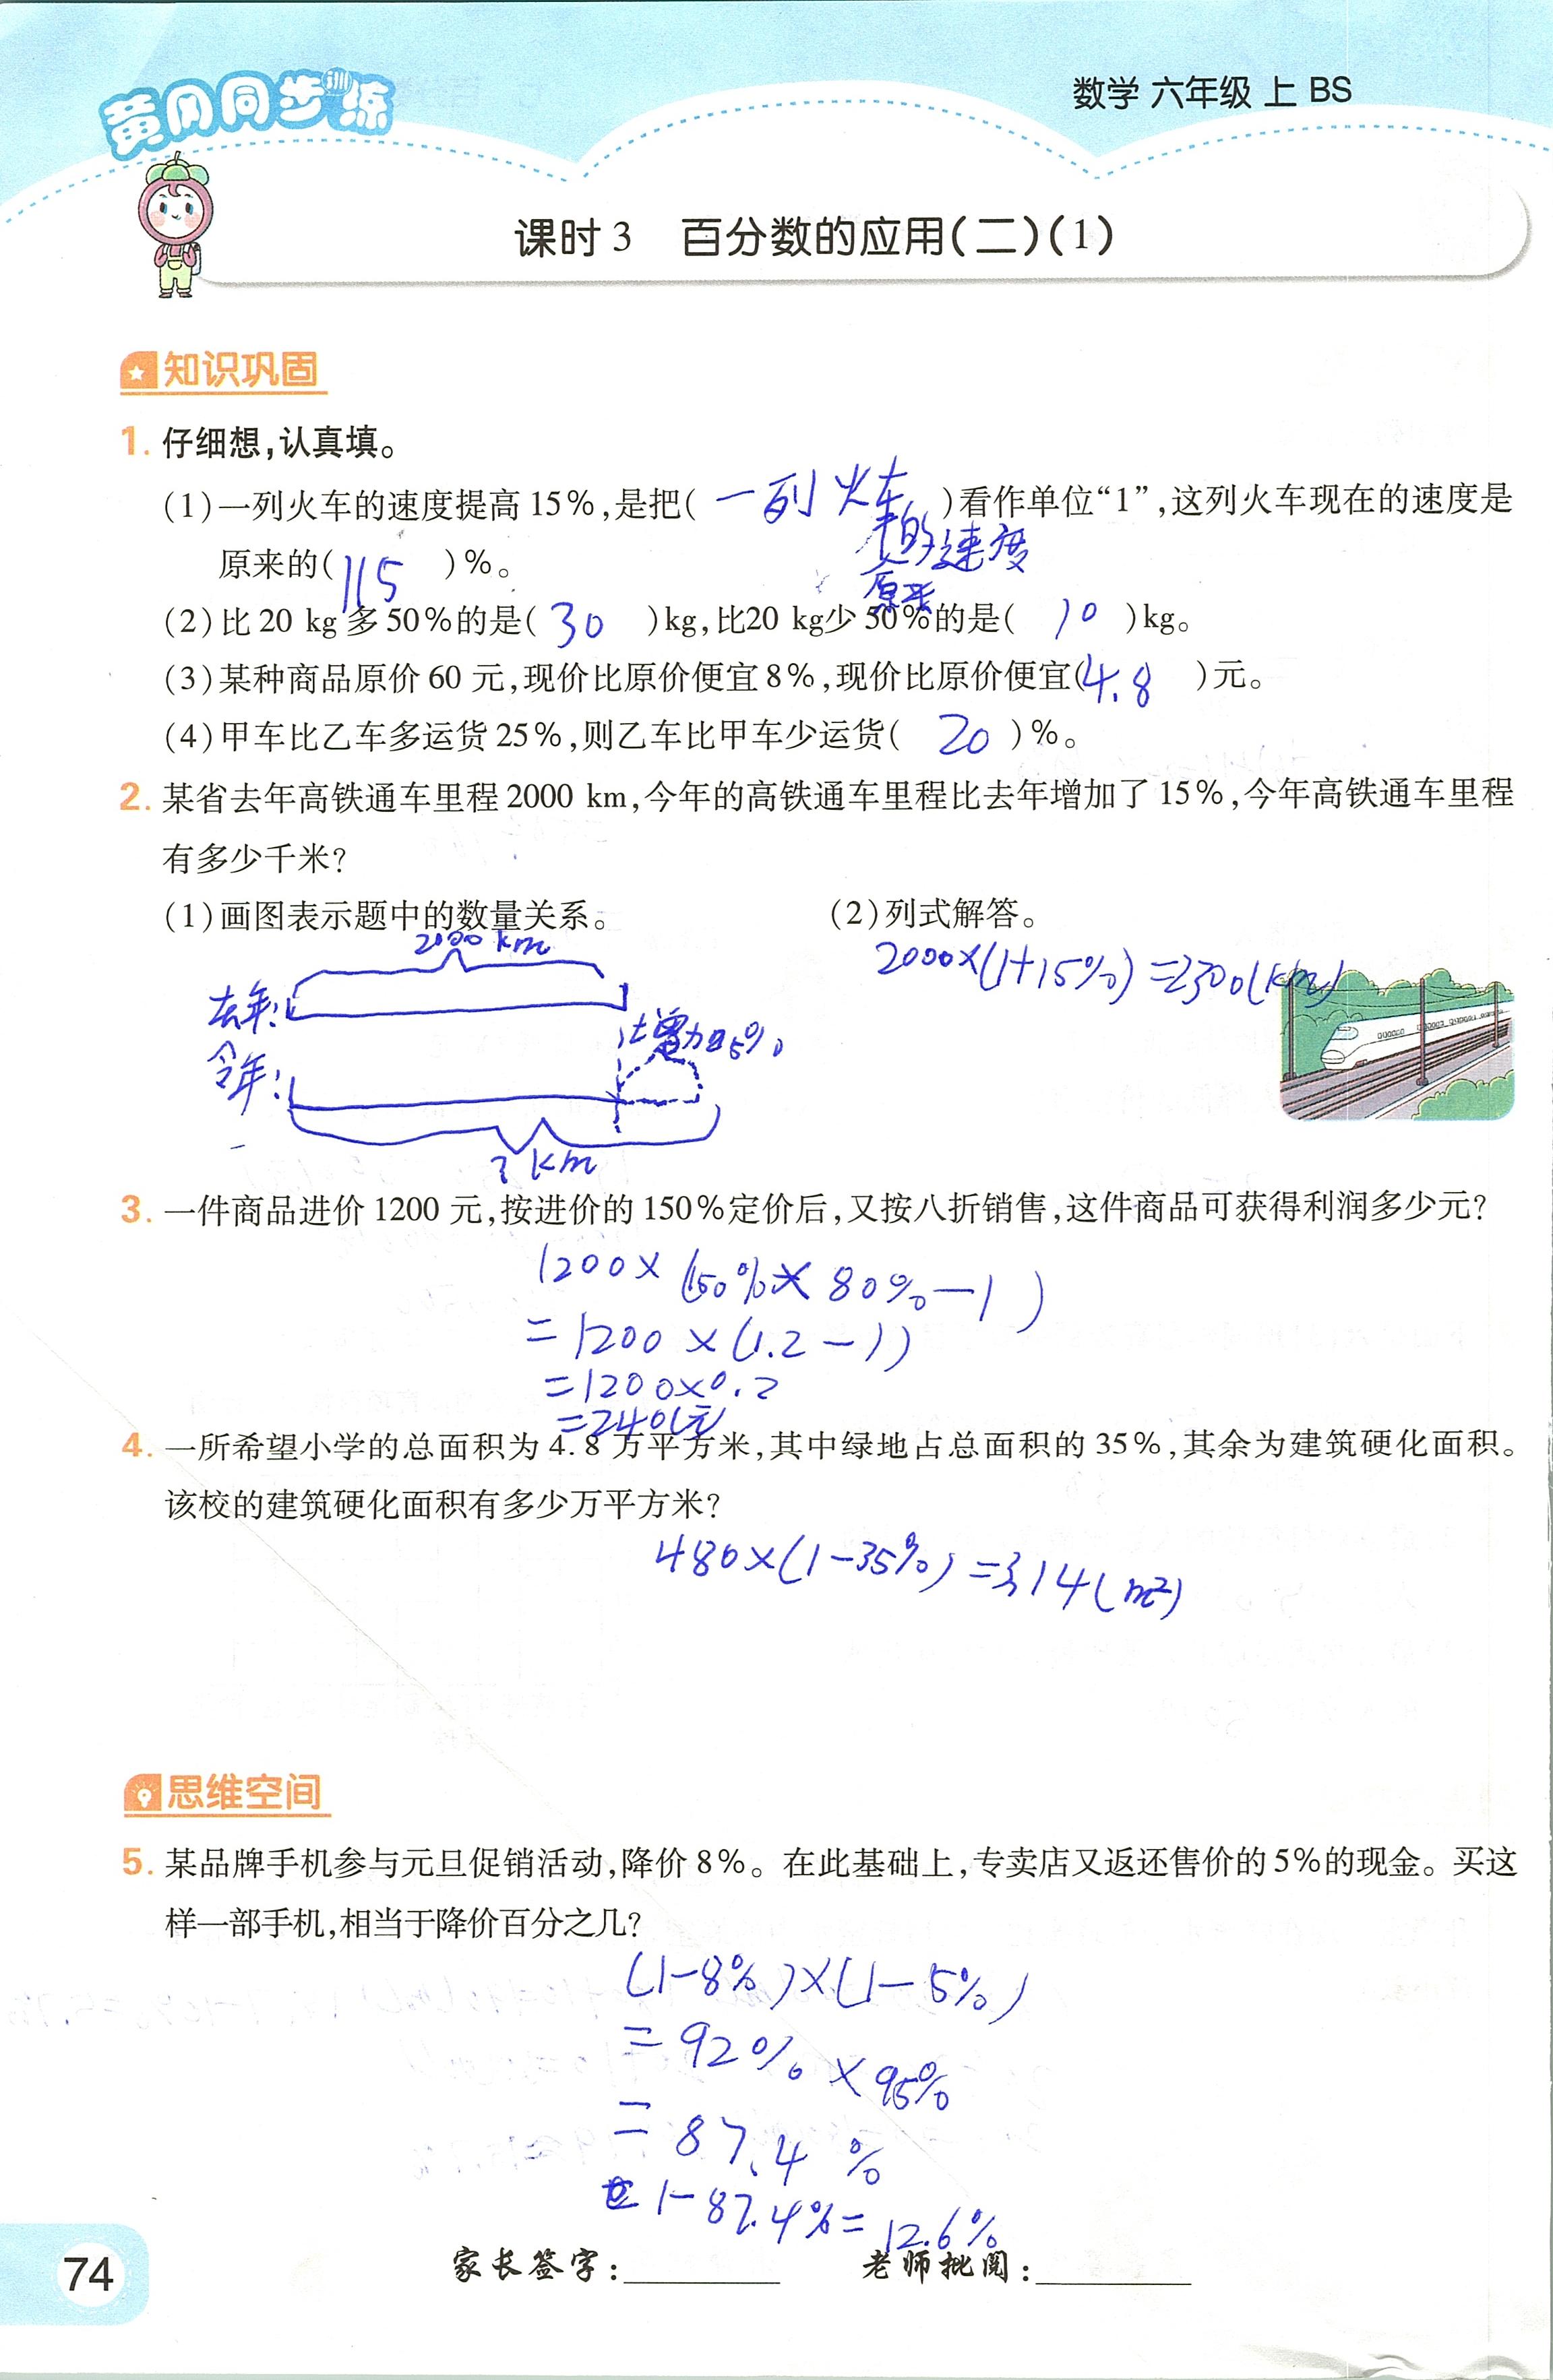 黄冈同步训练
数学 六年级 上 BS
课时3 百分数的应用(二)(1)
知识巩固
1. 仔细想,认真填。
(1)一列火车的速度提高15%,是把( 一列火车 )看作单位“1”,这列火车现在的速度是
的速度
原来的( 115 )%。
原来
(2)比20 kg多50%的是( 30 )kg,比20 kg少50%的是( 10 )kg。
(3)某种商品原价60元,现价比原价便宜8%,现价比原价便宜( 4.8 )元。
(4)甲车比乙车多运货25%,则乙车比甲车少运货( 20 )%。
2. 某省去年高铁通车里程2000 km,今年的高铁通车里程比去年增加了15%,今年高铁通车里程
有多少千米?
(1)画图表示题中的数量关系。 (2)列式解答。
2000 km
2000×(1+15%)=2300(km)
去年:
增加15%
今年:
? km
3. 一件商品进价1200元,按进价的150%定价后,又按八折销售,这件商品可获得利润多少元?
1200×(150%×80%-1)
=1200×(1.2-1)
=1200×0.2
=240(元)
4. 一所希望小学的总面积为4.8万平方米,其中绿地占总面积的35%,其余为建筑硬化面积。
该校的建筑硬化面积有多少万平方米?
480×(1-35%)=314(m²)
思维空间
5. 某品牌手机参与元旦促销活动,降价8%。在此基础上,专卖店又返还售价的5%的现金。买这
样一部手机,相当于降价百分之几?
(1-8%)×(1-5%)
=92%×95%
=87.4%
1-87.4%=12.6%
家长签字: 老师批阅:
74